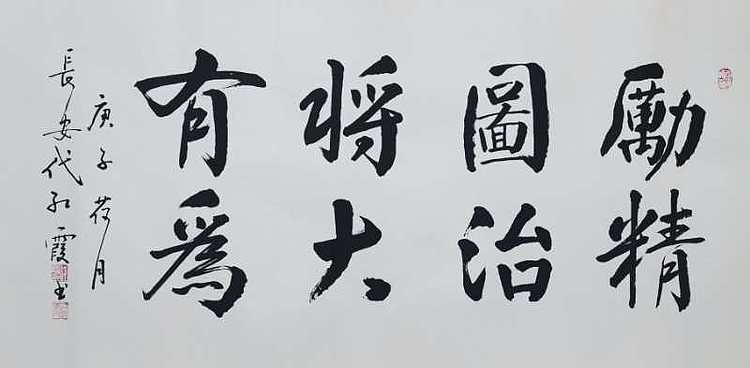 勵精
圖治
將大
有為
庚子荷月
長安代紅霞書